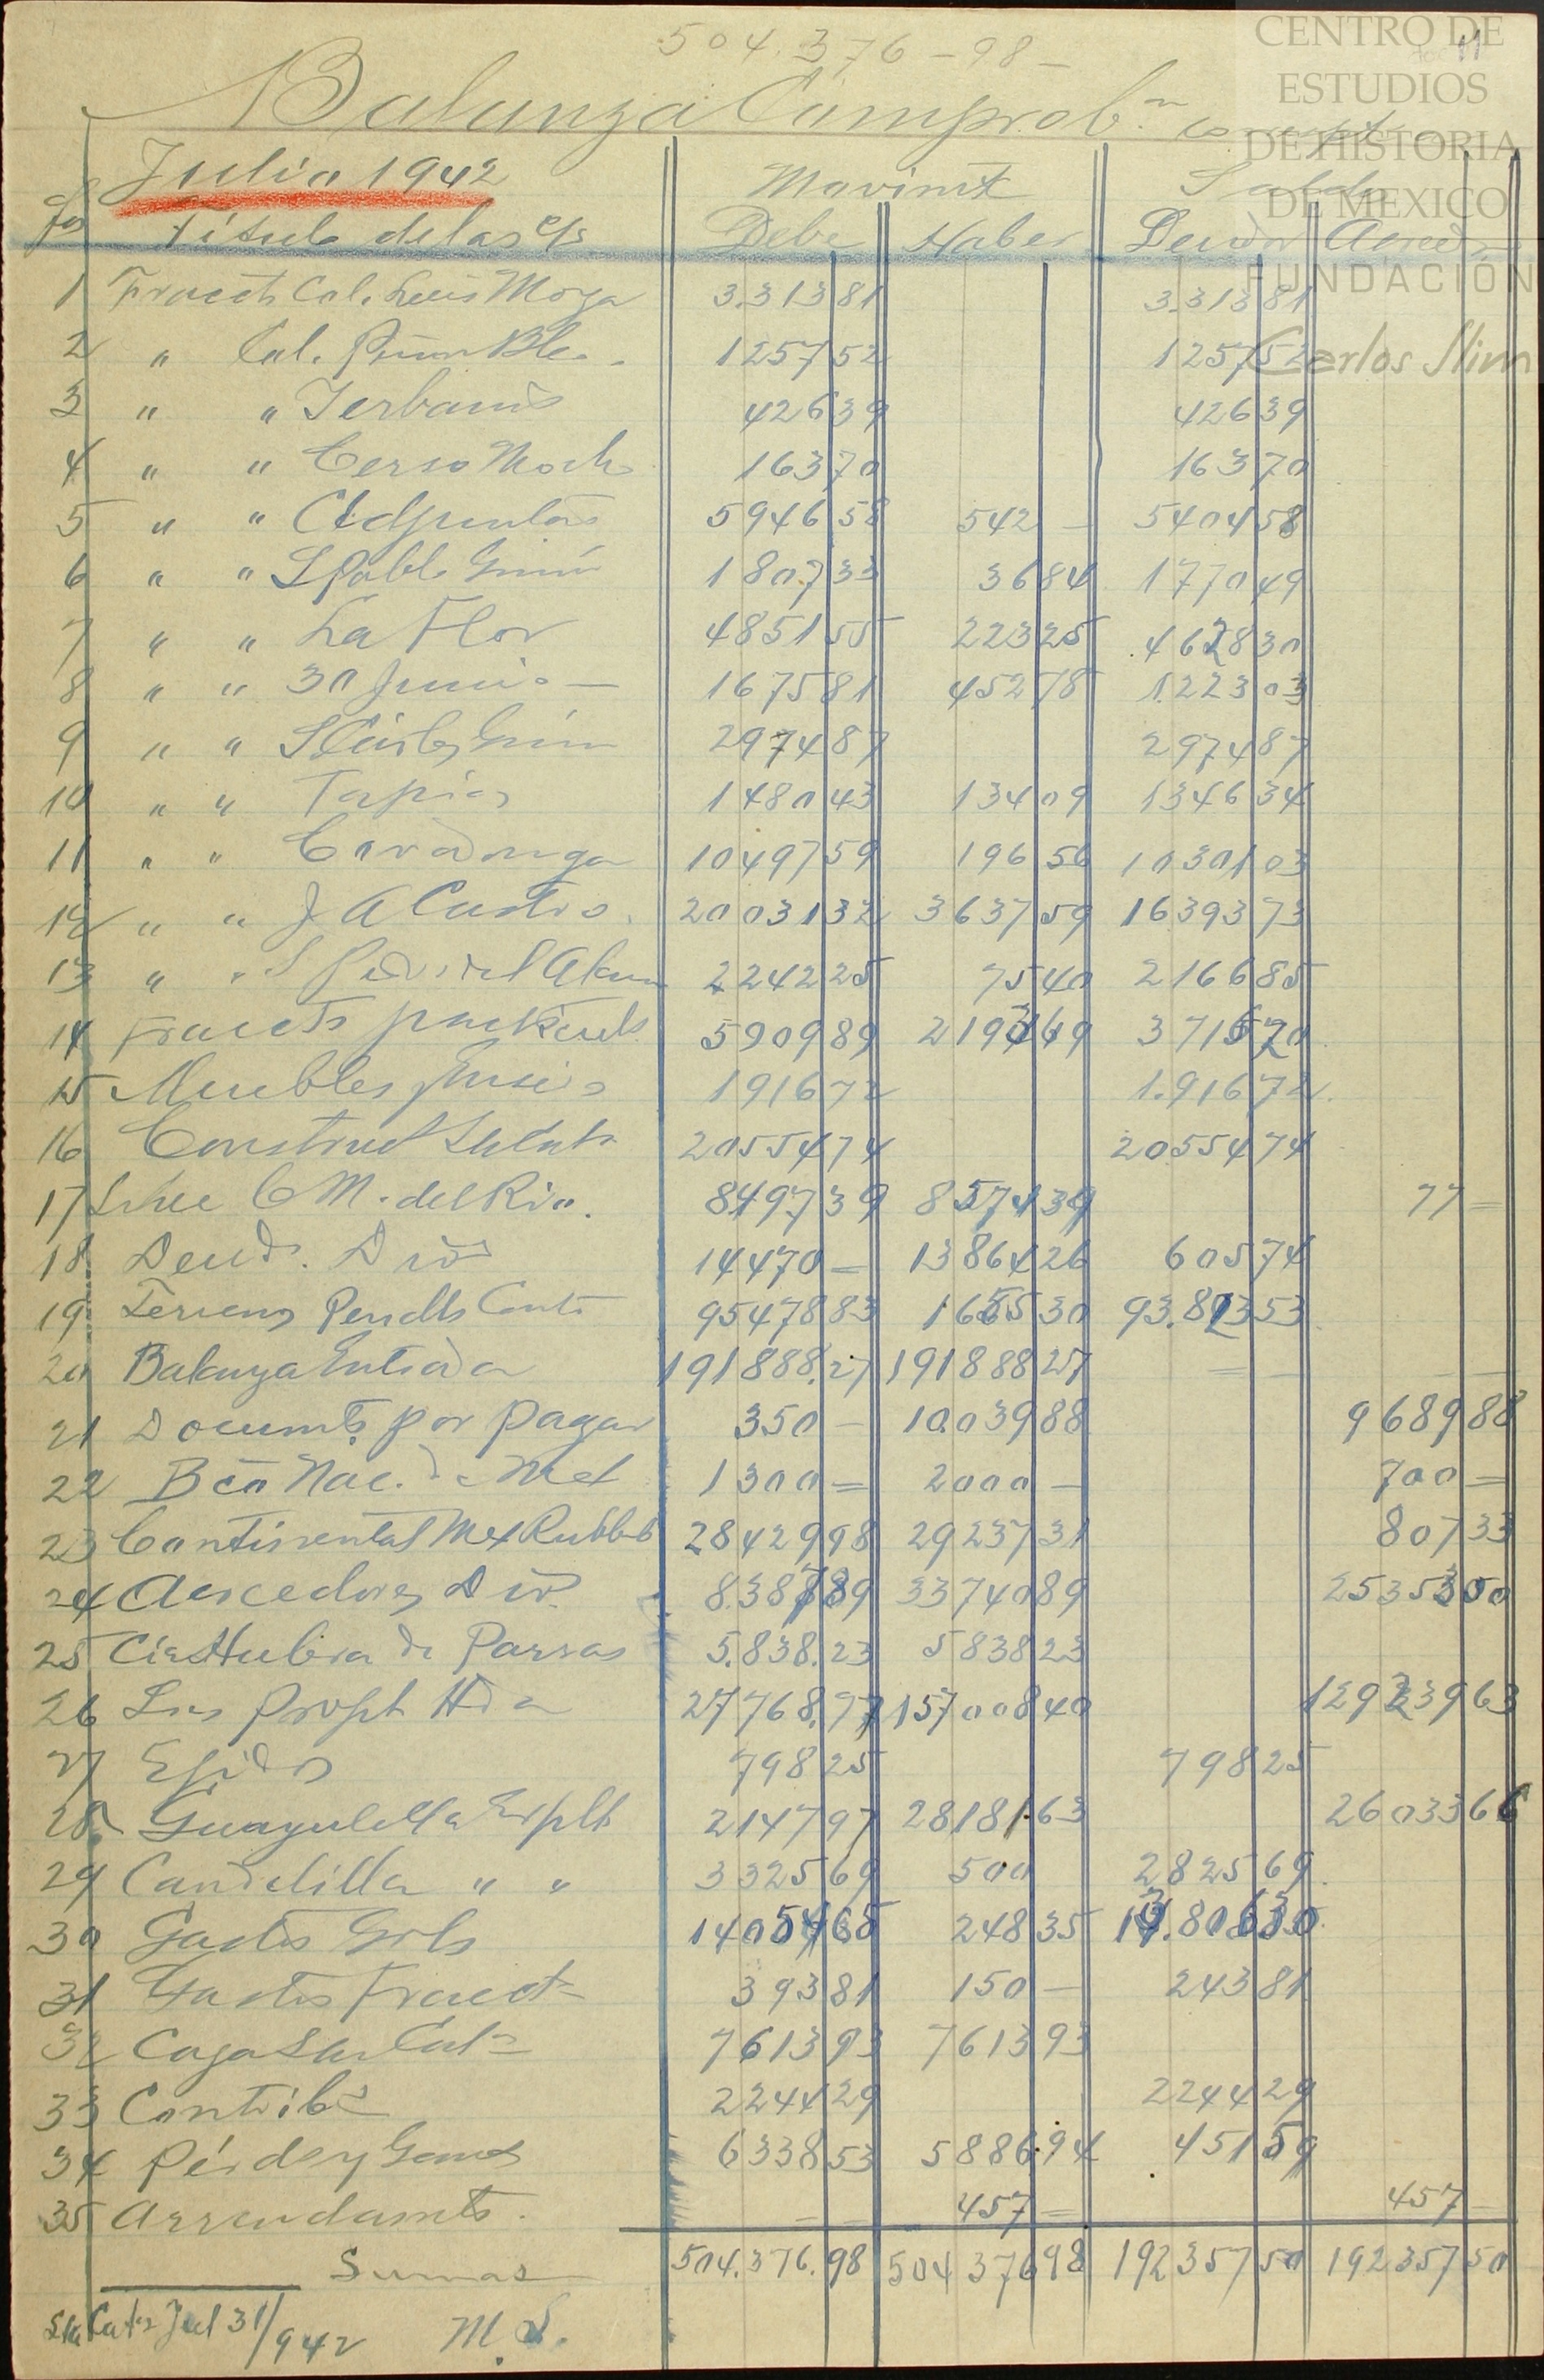 504.376-98-
Balanza Comprobn
Julio 1942 Movimt Saldo
Fos Título de las c/s Debe Haber Deudor Acreed
1 Fracct Col. Luis Moya 3.313 81 3.313 81
2 " Cal. 1257 52 1257 52
3 " " Jerbanis 426 39 426 39
4 " " Cerro 163 70 163 70
5 " " Adjuntas 5946 58 542 — 5404 58
6 " " S Pablo 1807 33 36 84 1770 49
7 " " La Flor 4851 55 223 25 4628 30
8 " " 30 Junio — 1675 81 452 78 1.223 03
9 " " 2974 87 2974 87
10 " " Tapias 1480 43 134 09 1346 34
11 " " Covadonga 10497 59 196 56 10301 03
12 " " J A Castro. 20031 32 3637 59 16393 73
13 " " 2242 25 75 40 2166 85
14 Fraccts 5909 89 2193 69 3716 20
15 Muebles 1916 72 1.916 72
16 Construct 20554 74 20554 74
17 C M. del Rio. 8497 39 8574 39 77 =
18 Deud. Divs 14470 = 13864 26 605 74
19 Terrenos Pendts 95478 83 1655 30 93.823 53
20 Balanza Entrada 191888.27 191888 27 = =
21 Documts por pagar 350 — 10.039 88 9689 88
22 Bco Nac. de Mex 1300 = 2000 — 700 =
23 Continental Mex Rubber 28429 98 29237 31 807 33
24 Acreedores Divs 8.387 89 33740 89 25353 00
25 Cia Hulera de Parras 5.838.23 5838 23
26 27768.77 157008 40 129239 63
27 Ejidos 798 25 798 25
28 Guayulilla Explt 2147 97 28181 63 26033 66
29 Candelilla " " 3325 69 500 2825 69
30 Gastos Grls 14054 65 248 35 13.806 30
31 Gastos Fracct 393 81 150 — 243 81
32 Caja 7613 93 7613 93
33 Contribs 2244 29 2244 29
34 Pérd y Gans 6338 53 5886.94 451 59
35 Arrendamts. — — 457 = 457 —
Sumas 504.376.98 504376 98 192357 50 192357 50
Jul 31/942 M.S.
CENTRO DE
ESTUDIOS
DE HISTORIA
DE MEXICO
FUNDACIÓN
Carlos Slim